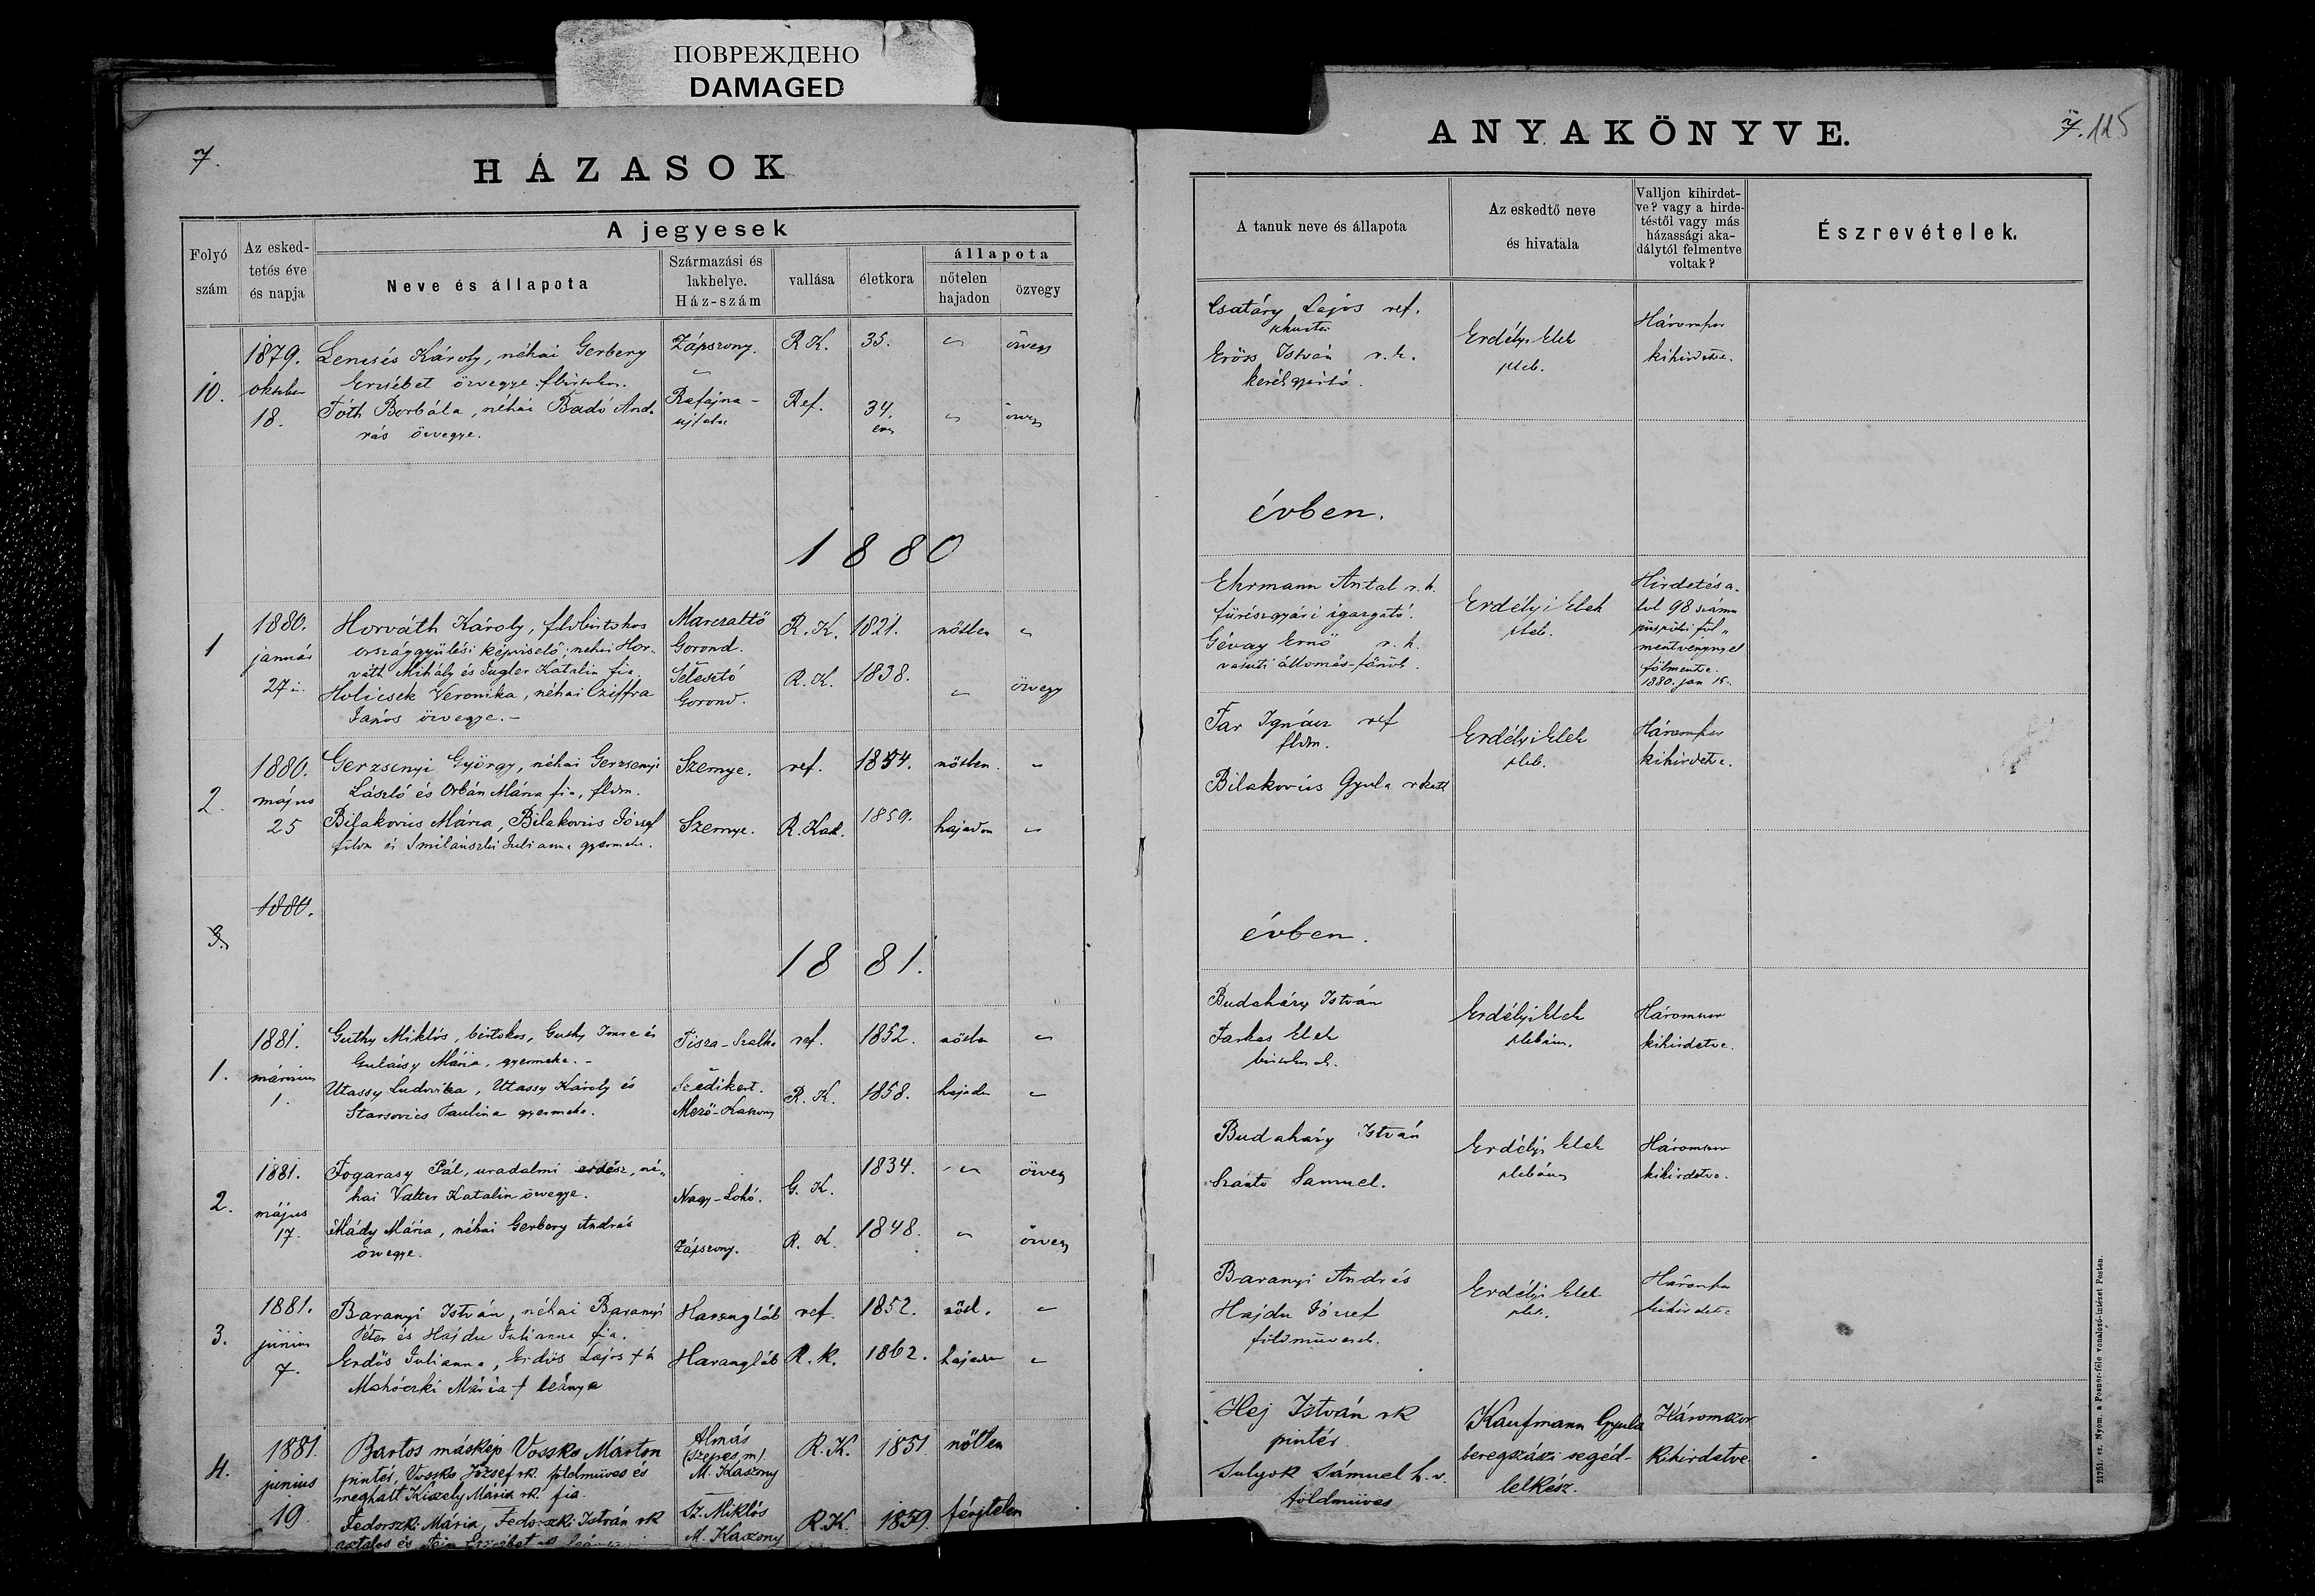 ПОВРЕЖДЕНО
DAMAGED
7.
HÁZASOK
Folyó szám
Az esked-
tetés éve
és napja
A jegyesek
Neve és állapota
Származási és
lakhelye.
Ház-szám
vallása
életkora
állapota
nőtelen
hajadon
özvegy
10.
1879.
október
18.
Lencsés Károly, néhai Gerbery
Erzsébet özvegye
Tóth Borbála, néhai Badó And-
rás özvegye.
Zápszony.
Rafajna-
ujfalu
R K.
Ref.
35.
34.
özvegy
özvegy
1880
1
1880.
január
27
Horváth Károly, flbirtokos
országgyülési képviselő, néhai Hor-
váth Mihály és Jugler Katalin fia.
Holicsek Veronika, néhai Cziffra
János özvegye.-
Marczaltő
Gorond.
Gorond.
R. K.
R. K.
1821.
1838.
nőtlen
özvegy
2.
1880.
május
25
Gerzsenyi György, néhai Gerzsenyi
László és Orbán Mária fia, fldm.
Bilakovics Mária, Bilakovics József
Szernye.
Szernye.
ref.
R. Kat.
1854.
1859.
nőtlen.
hajadon
3.
1880.
1881.
1.
1881.
márczius
1.
Guthy Miklós, birtokos, Guthy Imre és
Gulácsy Mária, gyermeke.-
Utassy Ludovika, Utassy Károly és
Starsovics Paulina gyermeke.
Tisza-Szalka
Mező-Kaszony
ref.
R. K.
1852.
1858.
nőtlen
hajadon
2.
1881.
május
17.
Fogarasy Pál, uradalmi erdész, né-
hai Valter Katalin özvegye.
Mády Mária, néhai Gerbery András
özvegye.
Nagy-Lohó.
Zápszony.
G. K.
R. K.
1834.
1848.
özvegy
özvegy
3.
1881.
június
7.
Baranyi István, néhai Baranyi
Péter és Hajdu Julianna fia.
Erdős Julianna, Erdős Lajos † és
Mária † leánya
Harangláb
Harangláb
ref.
R. K.
1852.
1862.
nőtl.
hajadon
4.
1881.
junius
19.
Bartos máskép Vossko Márton
pintér, Vossko József rk. földmüves és
meghalt Kiszely Mária rk. fia.
Fedorszki Mária, Fedorszki István rk
asztalos és
Almás
(Szepes m).
M. Kaszony
Sz. Miklós
M. Kaszony
R. K.
R. K.
1851.
1859.
nőtlen
férjtelen
ANYAKÖNYVE.
7. 115
A tanuk neve és állapota
Az eskedtő neve
és hivatala
Valljon kihirdet-
ve? vagy a hirde-
téstől vagy más
házassági aka-
dálytól felmentve
voltak?
Észrevételek.
Csatáry Lajos ref.
Erőss István r. k.
kerékgyártó.
Erdélyi Elek
pleb.
Háromszor
kihirdetve.
évben.
Ehrmann Antal r. k.
fürészgyári igazgató.
Gévay Ernő r. k.
vasuti állomás-főnök.
Erdélyi Elek
pleb.
Hirdetés a-
lol 98 számu
püspöki föl-
mentvénynyel
fölmentve.
1880. jan
Tar Ignácz ref
fldm.
Bilakovics Gyula rkath
Erdélyi Elek
pleb.
Háromszor
kihirdetve.
évben.
Budaházy István
Farkas Elek
birtokosok.
Erdélyi Elek
plebános.
Háromszor
kihirdetve.
Budaházy István
Szántó Samuel.
Erdélyi Elek
plebános
Háromszor
kihirdetve.
Baranyi András
Hajdu József
földmüvesek.
Erdélyi Elek
pleb.
Háromszor
kihirdetve
Hej István rk
pintér
Sulyok Sámuel h. v.
földmüves
Kaufmann Gyula
beregszászi segéd-
lelkész.
Háromszor
kihirdetve
21751. sz. Nyom. a Posner-féle vonalozó-intézet Pesten.